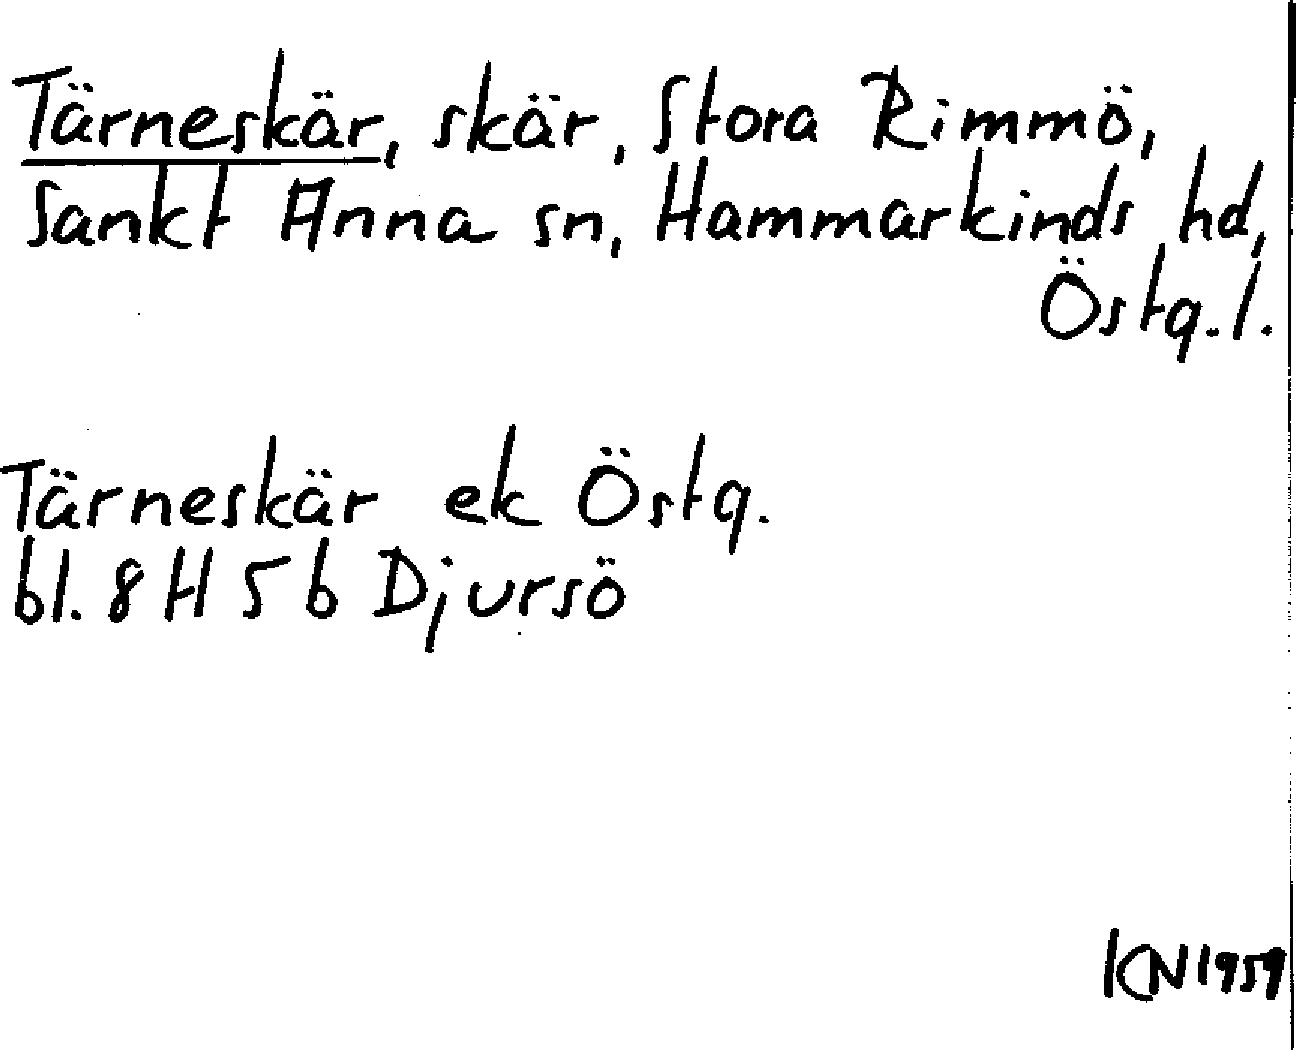 Tärneskär, skär, Stora Rimmö,
Sankt Anna sn, Hammarkinds hd,
Östg. l.
Tärneskär ek Östg.
bl. 8 H 5 b Djursö
KN 1959